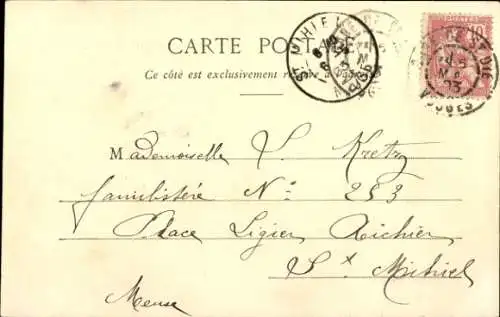 CARTE POSTALE
Ce côté est exclusivement réservé à
ST MIHIEL
ST DIÉ
VOSGES
10
Mademoiselle S. Kretz
familistère N° 253
Place Ligier Richier
St Mihiel
Meuse